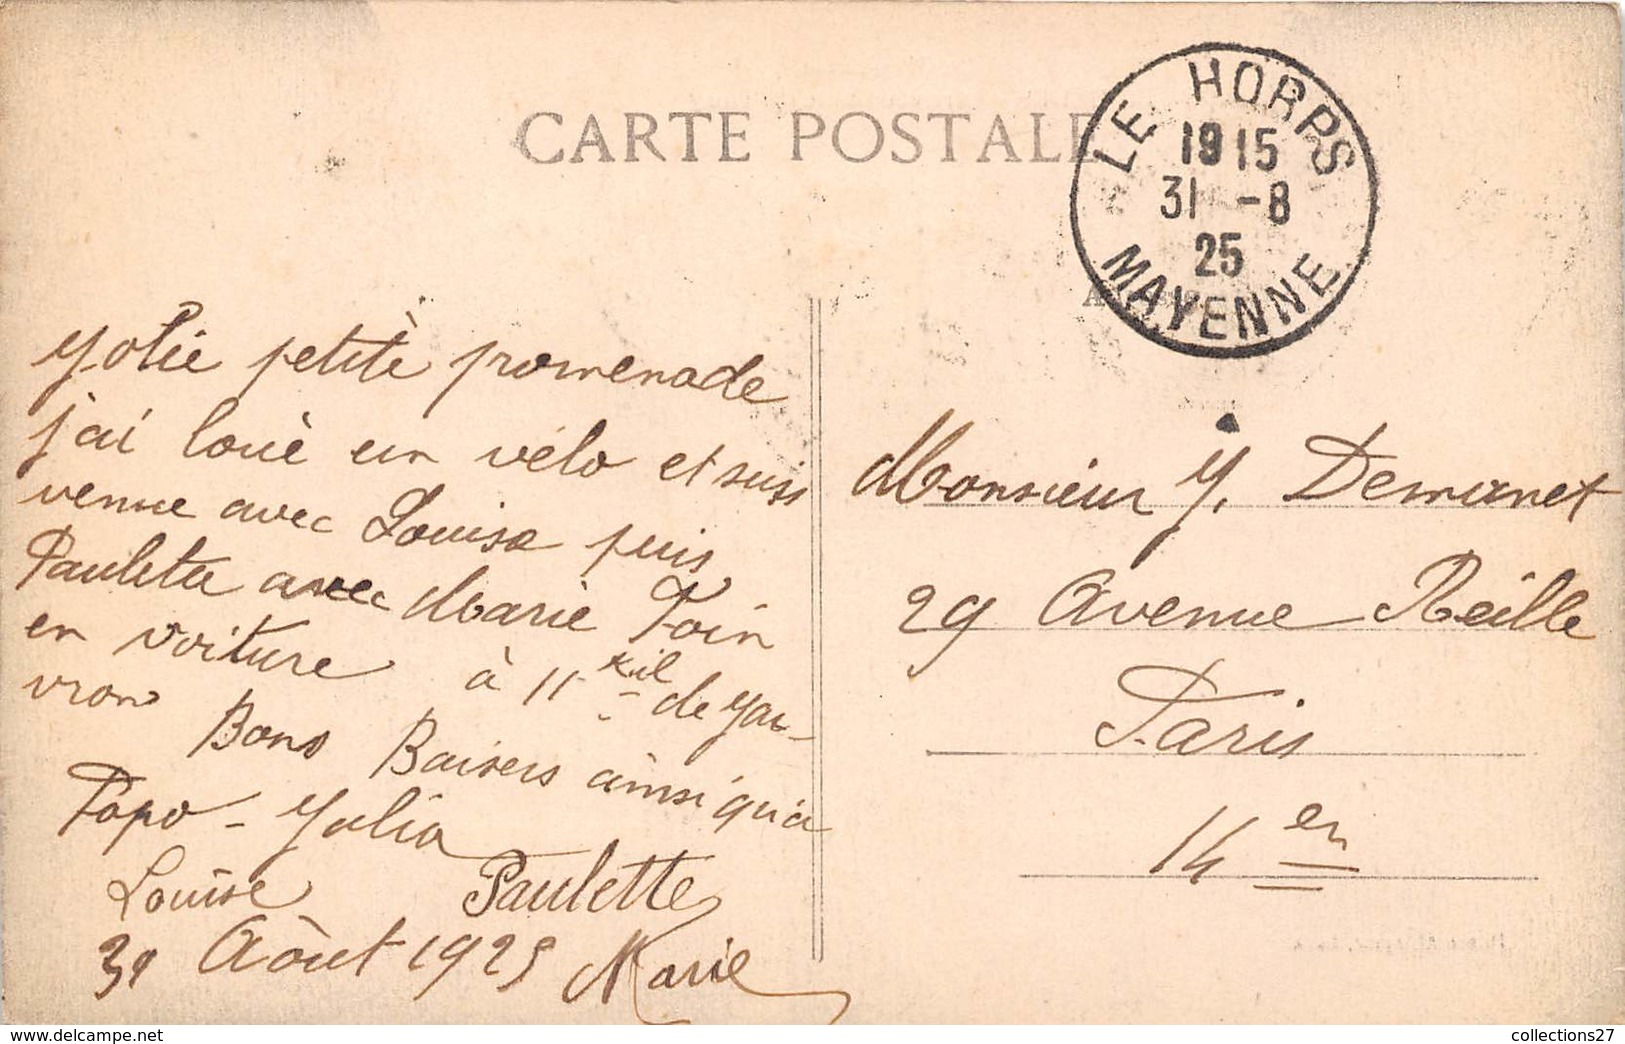 CARTE POSTALE
LE HORPS
1915
31 -8
25
MAYENNE
Jolie petite promenade
j'ai loué un vélo et suis
venue avec Louise puis
Paulette avec Marie Foin
en voiture à 11 kil de Jau-
vron Bons Baisers ainsi qu'à
Papo - Julia
Louise Paulette
31 Août 1925 Marie
Monsieur J. Demanet
29 Avenue Reille
Paris
14 en
collections27